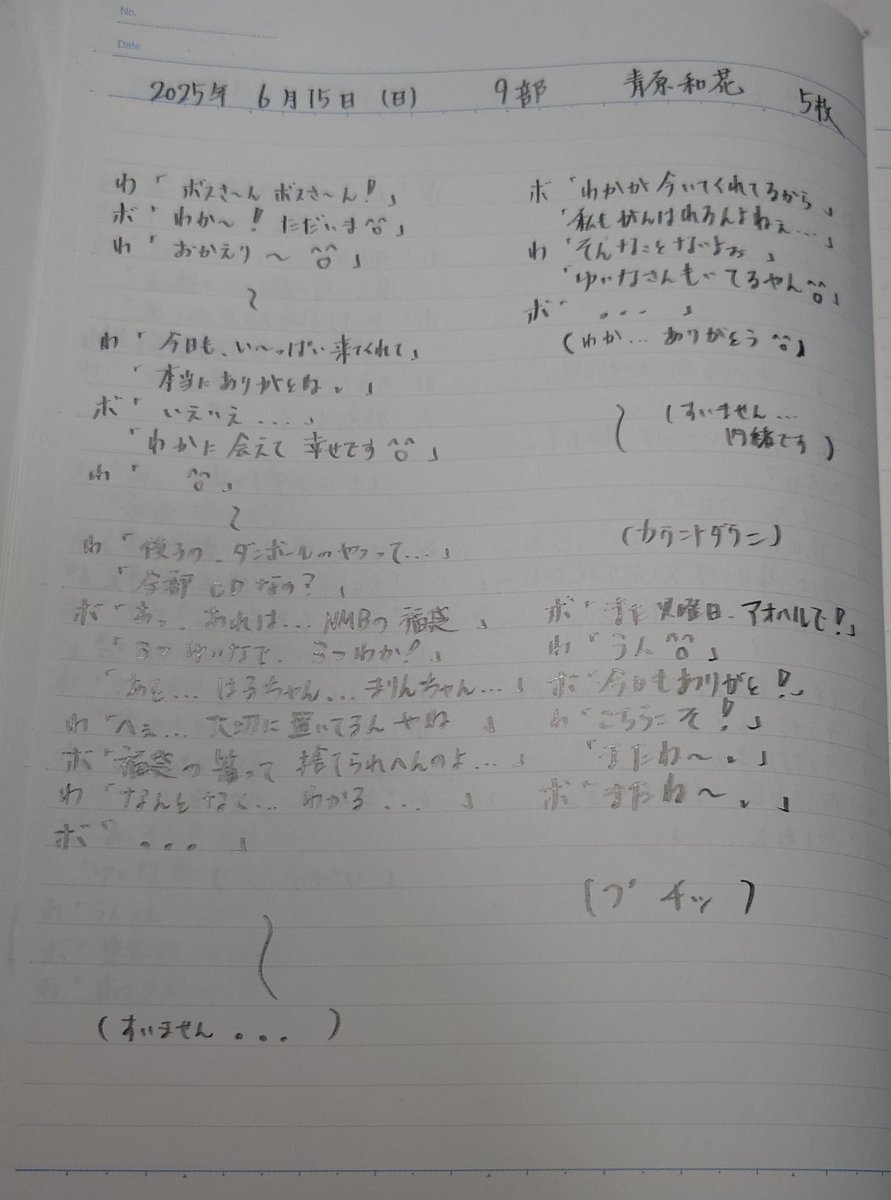 No.
Date
2025年 6月15日 (日) 9部 青原和花 5枚
わ「ボスさ〜ん ボスさ〜ん!」
ボ「わか〜! ただいま^o^」
わ「おかえり〜 ^o^」
〜
わ「今日も、い〜っぱい来てくれて」
「本当にありがとね。」
ボ「いえいえ....」
「わかに会えて 幸せです^o^」
わ「 ^o^」
〜
わ「後ろの、ダンボールのやつって...」
「全部 なの?」
ボ「あっ、あれは... NMBの福袋」
「 ゆいなで、 わか!」
「あと... はるちゃん... まりんちゃん...」
わ「へぇ... 大切に置いてるんやね」
ボ「福袋の箱って 捨てられへんのよ...」
わ「なんとなく... わかる...」
ボ「...」
(すいません...)
ボ「わかが今いてくれてるから」
「私もがんばれるんよねぇ...」
わ「そんなことないよぉ」
「ゆいなさんもいてるやん^o^」
ボ「...」
(わか... ありがとう^o^)
(すいません...
内緒です)
(カウントダウン)
ボ「また火曜日、アオハルで!」
わ「うん^o^」
ボ「今日もありがと!」
わ「こちらこそ!」
「またね〜。」
ボ「またね〜。」
(ブチッ)